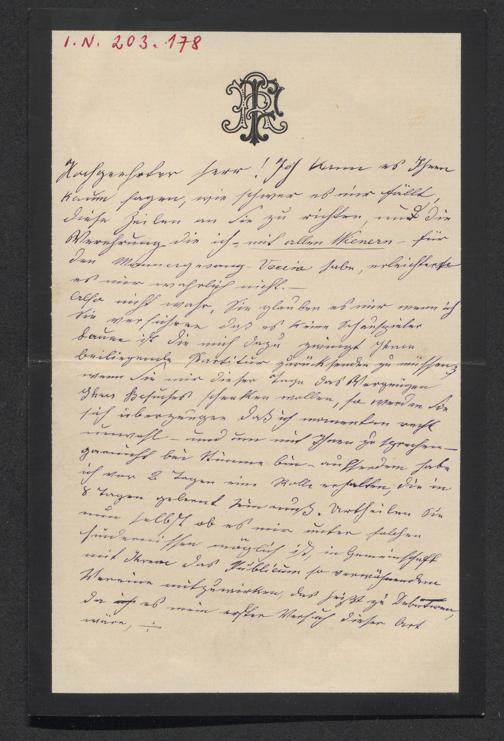 I. N. 203.178
Hochgeehrter Herr! Ich kann es Ihnen
kaum sagen, wie schwer es mir fällt,
diese Zeilen an Sie zu richten, und die
Verehrung die ich – mit allen Wienern – für
den Männergesang-Verein habe, erleichterte
es mir wahrlich nicht. –
Also nicht wahr, Sie glauben es mir wenn ich
Sie versichere daß es keine Schauspieler
laune ist die mich dazu zwingt Ihnen
beiliegende Partitur zurücksenden zu müssen,
wenn Sie mir dieser Tage das Vergnügen
Ihres Besuches schenken wollen, so werden Sie
sich überzeugen daß ich momentan recht
unwohl – und um mit Ihnen zu sprechen –
garnicht bei Stimme bin – außerdem habe
ich vor 2 Tagen eine Rolle erhalten, die in
8 Tagen gelernt sein muß. Urtheilen Sie
nun selbst ob es mir unter solchen
Hindernissen möglich ist, in Gemeinschaft
mit Ihrem das Publicum so verwöhnenden
Vereine mitzuwirken, das heißt zu Debutiren,
da es mein erster Versuch dieser Art
wäre, –